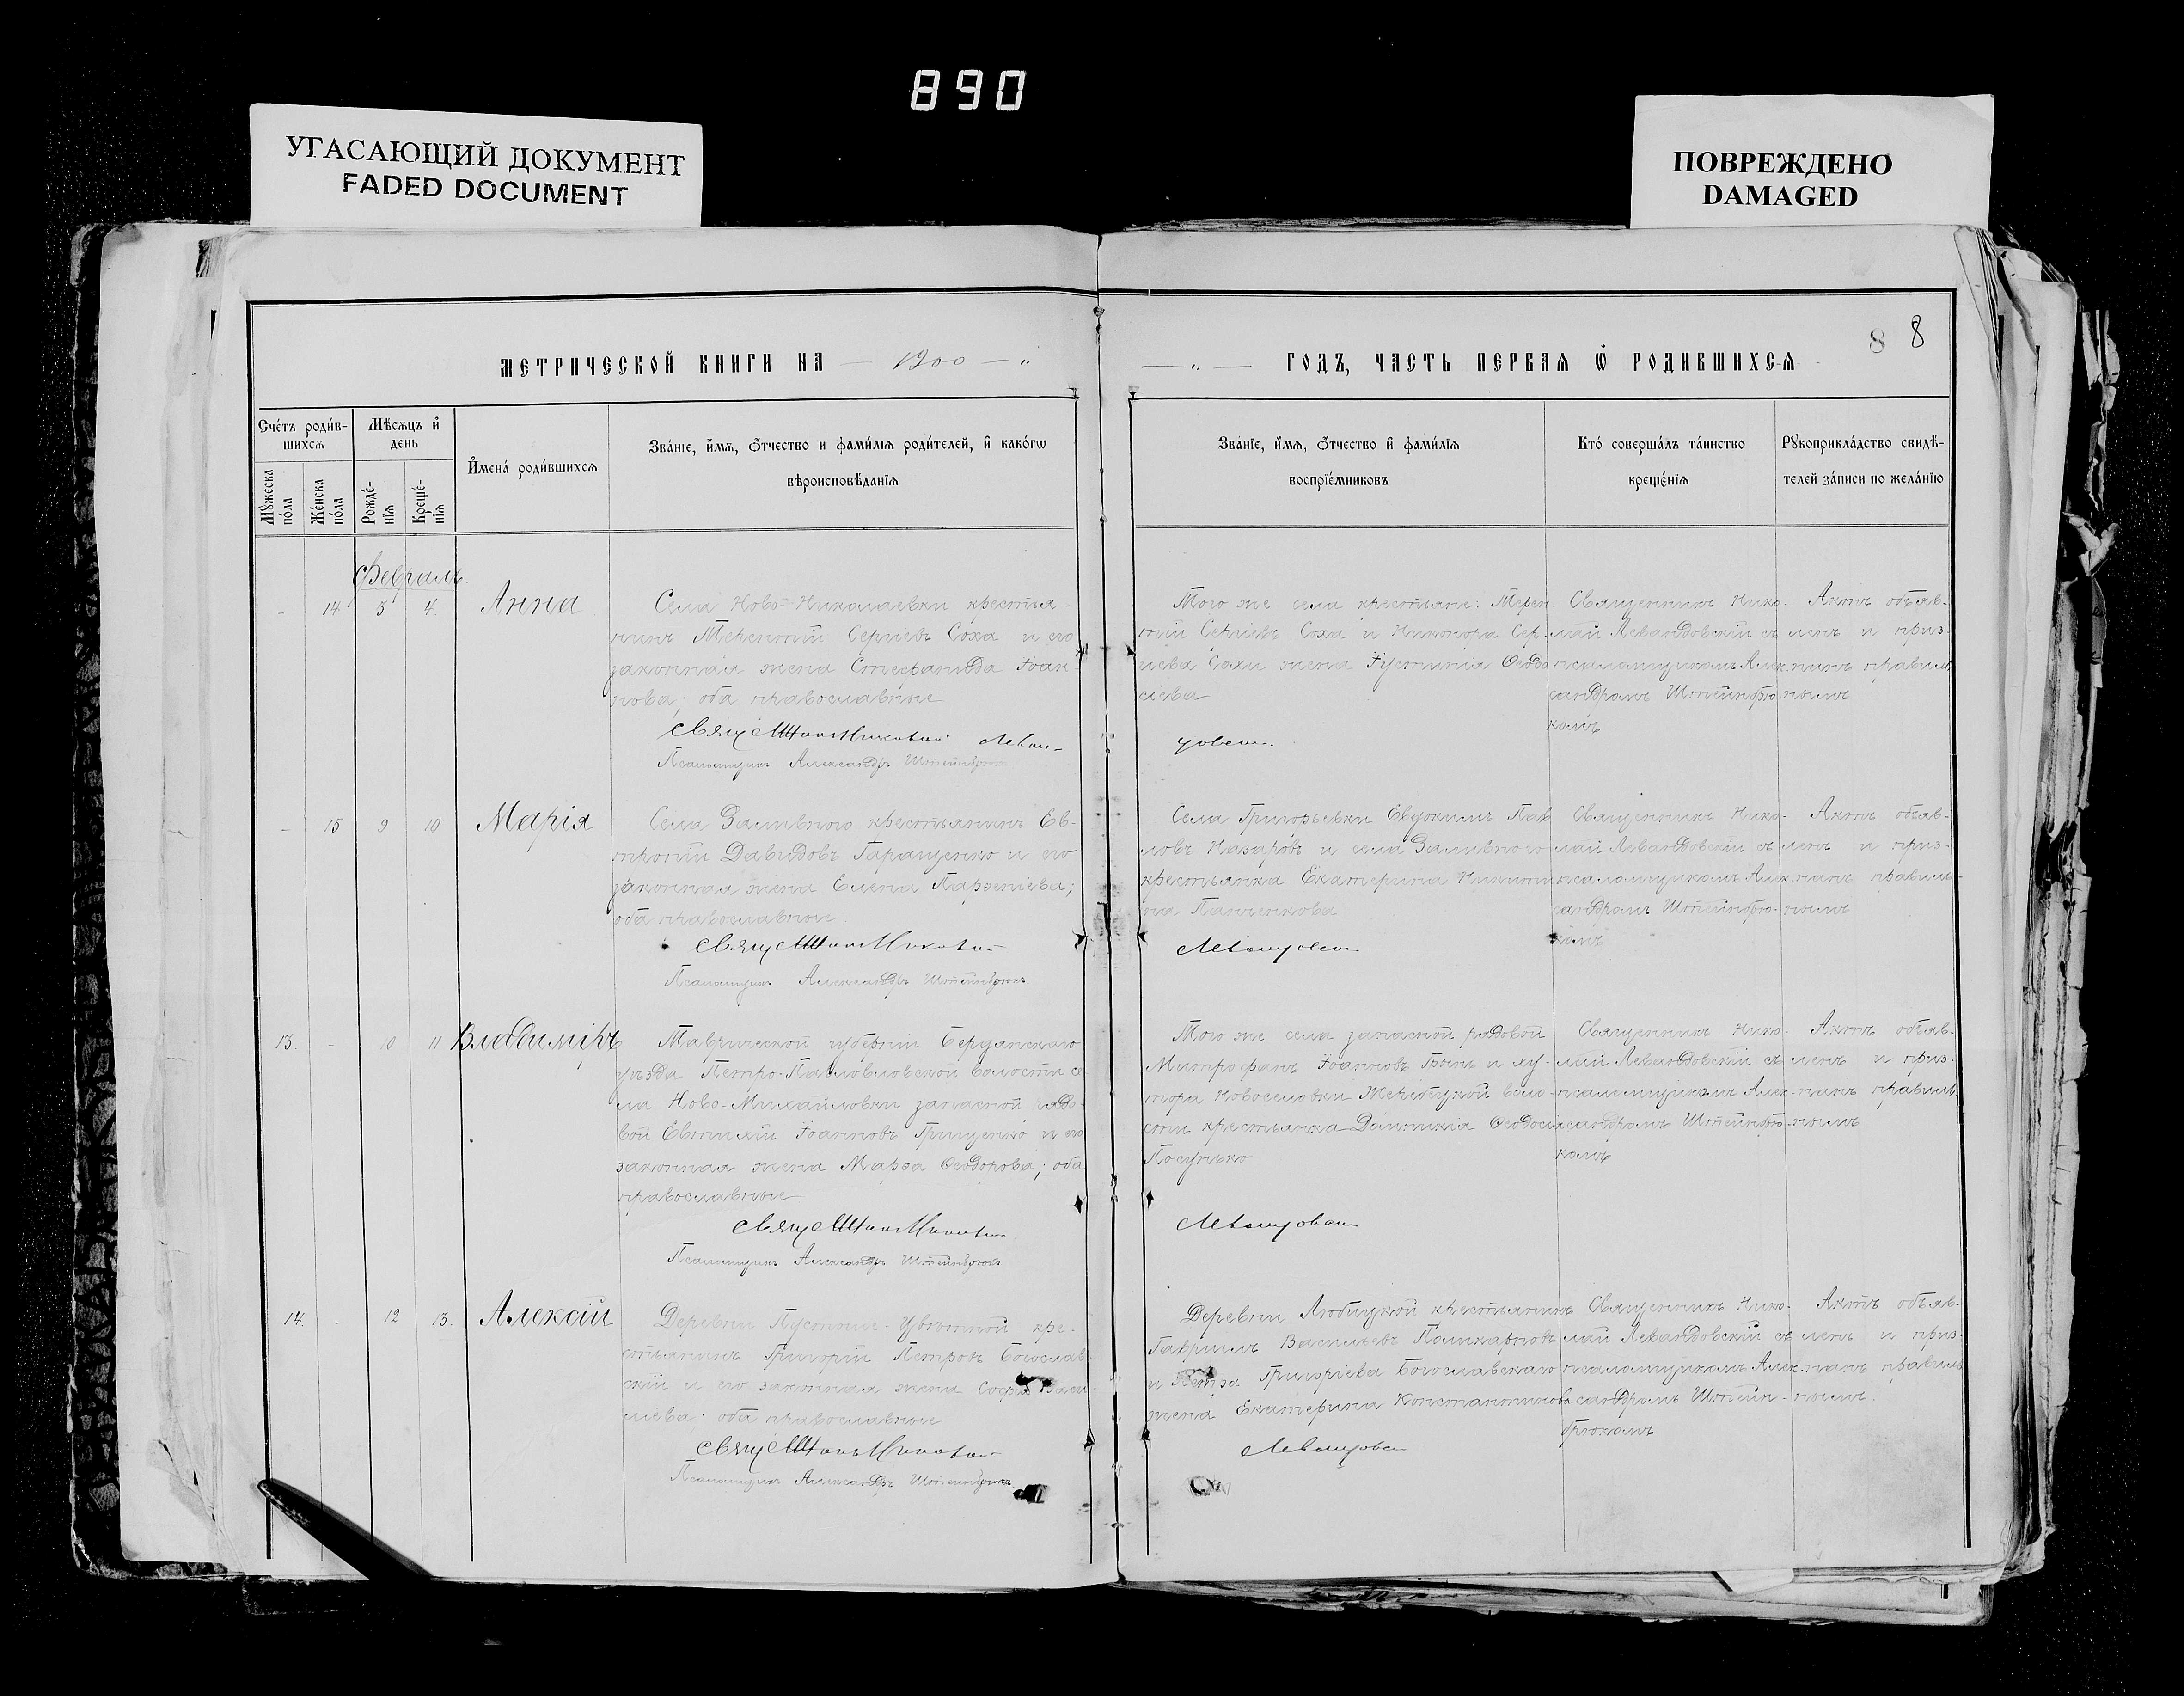 890
УГАСАЮЩИЙ ДОКУМЕНТ
FADED DOCUMENT
ПОВРЕЖДЕНО
DAMAGED
8 8
МЕТРИЧЕСКОЙ КНИГИ НА — 1900 — „
— „ — ГОДЪ, ЧАСТЬ ПЕРВАЯ Ѿ РОДИВШИХСЯ
Счéтъ роди́в-
шихсѧ
Мѣсѧцъ и҆
день
Мꙋжеска
по́ла
Же́нска
по́ла
Рожде́-
нїѧ
Креще́-
нїѧ
И҆мена́ роди́вшихсѧ
Зва́нїе, и҆́мѧ, ѻ҆́тчество и фами́лїѧ роди́телей, и҆ како́гѡ
вѣроисповѣ́данїѧ
Зва́нїе, и҆́мѧ, ѻ҆́тчество и҆ фами́лїѧ
воспрїе́мниковъ
Кто́ соверша́лъ та́инство
креще́нїѧ
Рꙋкоприкла́дство свидѣ́-
телей за́писи по жела́нїю
Февраль
- 14 3 4. Анна
Села Ново-Николаевки крестья-
нинъ Терентій Сергіевъ Соха и его
законная жена Стефанида Іоан-
нова; оба православные
Священникъ Николай Леван-
Псаломщикъ Александръ Штейнбрюкъ
Того же села крестьяне: Терен-
тій Сергіевъ Соха и Никонора Сер-
гіева Сохи жена Іустинія Ѳеодо
сіева
довскій
Священникъ Нико-
лай Левандовскій съ
псаломщикомъ Алек-
сандромъ Штейнбрю-
комъ
Актъ объяв-
ленъ и приз-
нанъ правиль
нымъ
- 15 9 10 Марія
Села Заливного крестьянинъ Ев-
тропій Давидовъ Геращенко и его
законная жена Елена Парѳеніева;
оба православные.
Священникъ Николай
Псаломщикъ Александръ Штейнбрюкъ
Села Григорьевки Евдокимъ Пав
ловъ Назаровъ и села Заливного
крестьянка Екатерина Никити
на Панченкова
Левандовскій
Священникъ Нико-
лай Левандовскій съ
псаломщикомъ Алек-
сандромъ Штейнбрю-
комъ
Актъ объяв-
ленъ и приз-
нанъ правиль-
нымъ
13. - 10 11 Владиміръ
Таврической губерніи Бердянскаго
уѣзда Петро-Павловловской волости се
ла Ново-Михайловки запасной рядо-
вой Евтихій Іоанновъ Грищенко и его
законная жена Марѳа Ѳеодорова; оба
православные.
Священникъ Николай
Псаломщикъ Александръ Штейнбрюкъ
Того же села запасной рядовой
Митрофанъ Іоанновъ Бынъ и ху-
тора Новоселовки воло-
сти крестьянка Ѳеодосія
Левандовскій
Священникъ Нико-
лай Левандовскій съ
псаломщикомъ Алек-
сандромъ Штейнбрю-
комъ
Актъ объяв-
ленъ и приз-
нанъ правиль
нымъ
14. - 12 13. Алексій
Деревни кре-
стьянинъ Григорій Петровъ Богослав
скій и его законная жена Софія Васи
ліева; оба православные
Священникъ Николай
Псаломщикъ Александръ Штейнбрюкъ
Деревни Любицкой крестьянинъ
Гавріилъ Васильевъ Поликарповъ
и Петра Григоріева Богославскаго
жена Екатерина Константинова
Левандовскій
Священникъ Нико-
лай Левандовскій съ
псаломщикомъ Алек-
сандромъ Штейн-
брюкомъ
Актъ объяв-
ленъ и приз-
нанъ правиль
нымъ.